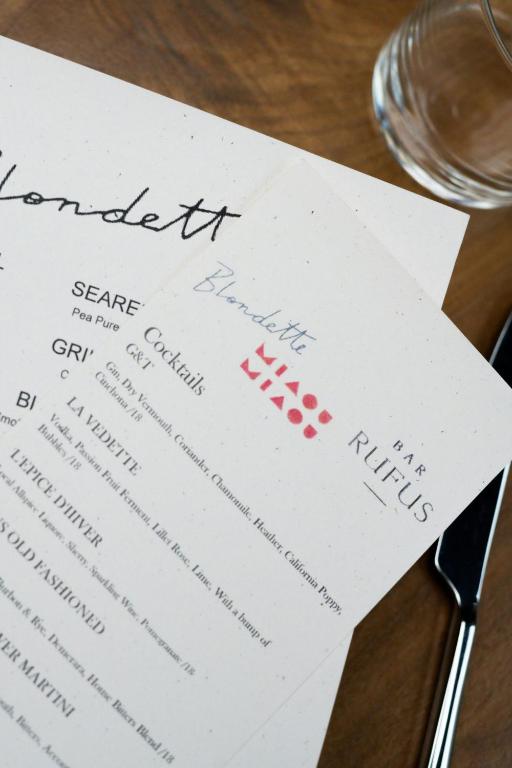 Blondett
SEARE
Pea Pure
GRI
C
BI
Blondette
MIAOU
MIAOU
BAR
RUFUS
Cocktails
G&T
Gin, Dry Vermouth, Coriander, Chamomile, Heather, California Poppy,
Cinchona /18
LA VEDETTE
Vodka, Passion Fruit Ferment, Lillet Rose, Lime, With a bump of
Bubbles /18
L'EPICE D'HIVER
Local Allspice Liqueur, Sherry, Sparkling Wine, Pomegranate /18
OLD FASHIONED
Bourbon & Rye, Demerara, House Bitters Blend /18
MARTINI
Bitters,